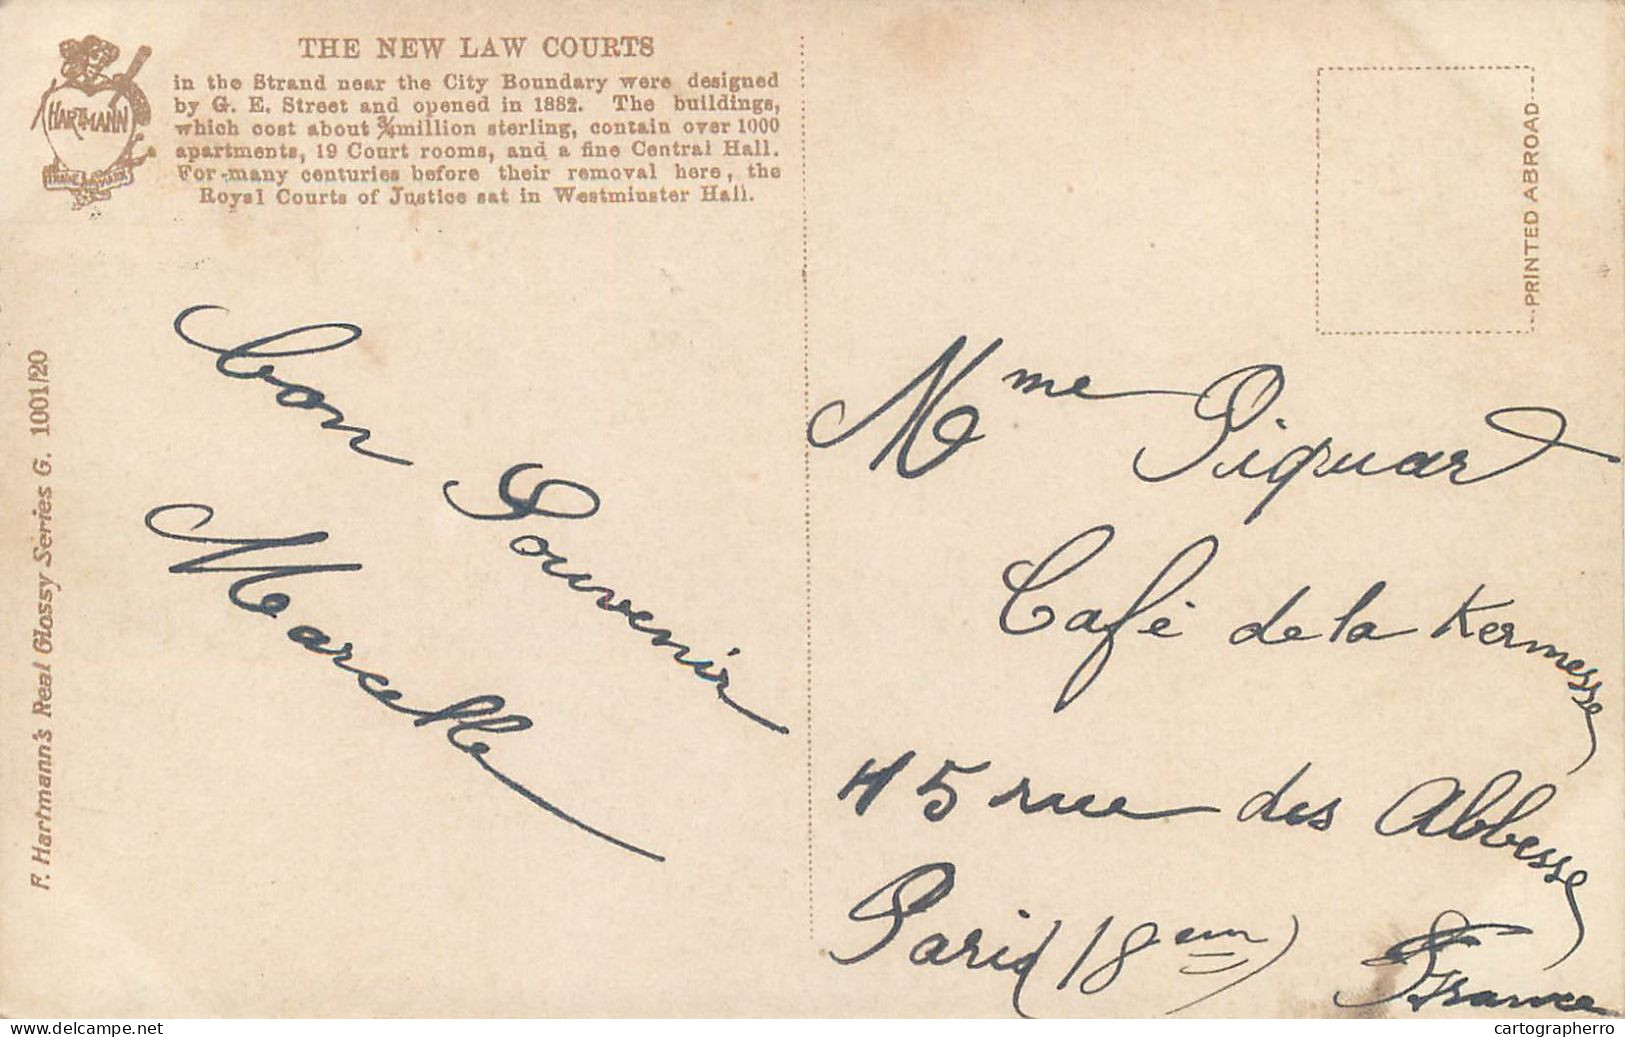 THE NEW LAW COURTS
in the Strand near the City Boundary were designed
by G. E. Street and opened in 1882. The buildings,
which cost about ¾ million sterling, contain over 1000
apartments, 19 Court rooms, and a fine Central Hall.
For many centuries before their removal here, the
Royal Courts of Justice sat in Westminster Hall.
HARTMANN
TRADE MARK
F. Hartmann's Real Glossy Series G. 1001/20
bon Souvenir
Marcelle
PRINTED ABROAD
Mme Piquart
Café de la Kermesse
45 rue des Abbesses
Paris (18em)
France
delcampe.net
cartographerro